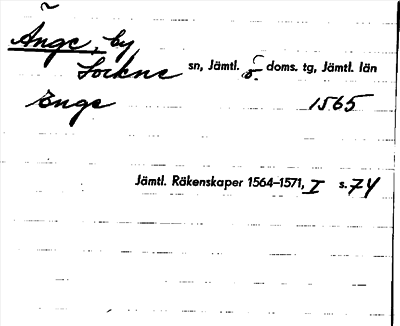 Ånge, by
Lockne sn, Jämtl. ö. doms. tg, Jämtl. län
Enge 1565
Jämtl. Räkenskaper 1564–1571, I s. 74